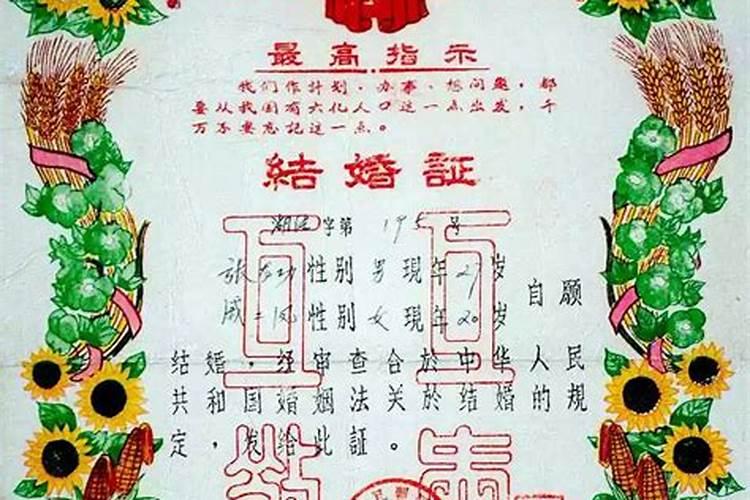 最高指示
我们作計划、办事、想问题，都
要从我国有六亿人口这一点出发，千
万不要忘記这一点。
結婚証
字第 195 号
張 功 性别 男 現年 27 岁
戚二凤 性别 女 現年 20 岁
自願
結婚，经审查合於中华人民
共和国婚姻法关於结婚的規
定，发给此証。
互
互
敬